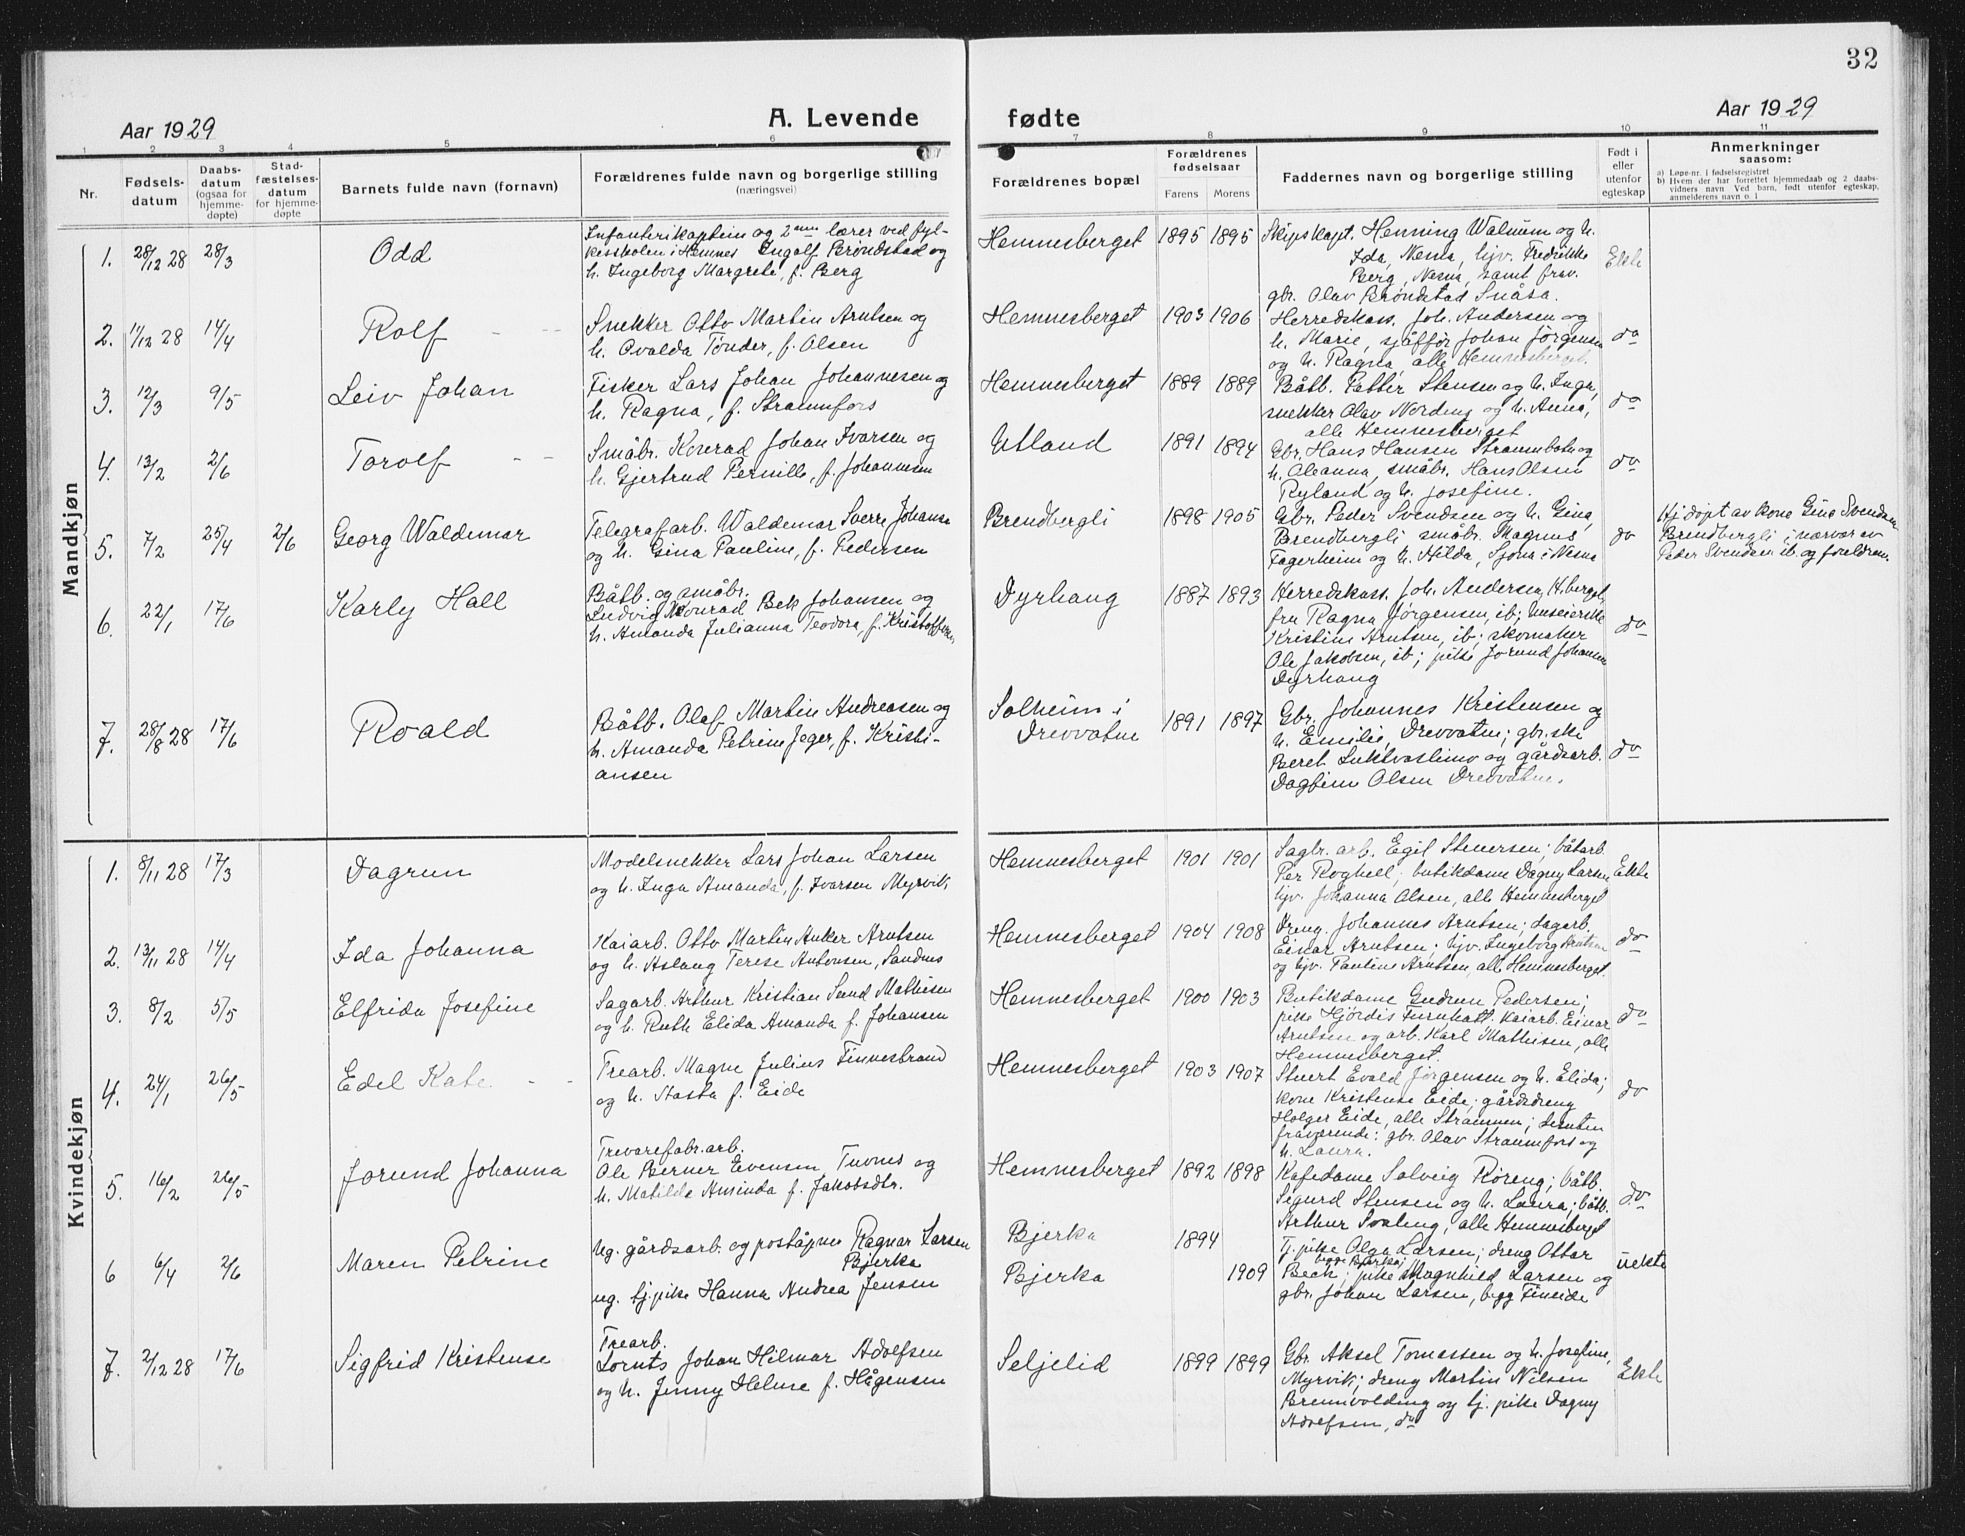 32
Aar 1929
A. Levende
fødte
Aar 1929
1 2 3 4 5 6 7 8 9 10 11
Nr.
Fødsels-
datum
Daabs-
datum
(ogsaa for
hjemme-
døpte)
Stad-
fæstelses-
datum
for hjemme-
døpte
Barnets fulde navn (fornavn)
Forældrenes fulde navn og borgerlige stilling
(næringsvei)
Forældrenes bopæl
Forældrenes
fødselsaar
Farens Morens
Faddernes navn og borgerlige stilling
Født i
eller
utenfor
egteskap
Anmerkninger
saasom:
a) Løpe-nr. i fødselsregistret
b) Hvem der har forrettet hjemmedaab og 2 daabs-
vidners navn Ved barn, født utenfor egteskap,
anmelderens navn o. l
Mandkjøn
1. 28/12 28 28/3 Odd
Infanterikaptein og 2nen lærer ved fyl-
kesskolen i Hemnes Ingolf Bröndstad og
h. Ingeborg Margrete, f. Berg
Hemnesberget 1895 1895
Skipskapt. Henning Walnum og h.
Ida, Nesna, hjv. Fredrikke
Berg, Nesna, samt frav.
gbr. Olav Bröndstad Snåsa.
Ekte
2. 11/12 28 14/4 Rolf
Snekker Otto Martin Arntsen og
h. Ovalda Tönder, f. Olsen
Hemnesberget 1903 1906
Herredskass. Joh. Andersen og
h. Marie, sjåfför Johan Jörgensen
og h. Ragna, alle Hemnesberget.
do
3. 12/3 9/5 Leiv Johan
Fisker Lars Johan Johannesen og
h. Ragna, f. Straumfors
Hemnesberget 1889 1889
Båtb. Petter Stensen og h. Inga,
snekker Olav Nordeng og h. Anna,
alle Hemnesberget
do
4. 13/2 2/6 Torolf
Småbr. Konrad Johan Ivarsen og
h. Gjertrud Pernille, f. Johannesen
Utland 1891 1894
Gbr. Hans Hansen Straumbotn og
h. Oleanna, småbr. Hans Olsen
Ryland og h. Josefine.
do
5. 7/2 25/4 2/6 Georg Waldemar
Telegrafarb. Waldemar Sverre Johansen
og h. Gina Pauline, f. Pedersen
Brendbergli 1898 1905
Gbr. Peder Svendsen og h. Gina,
Brendbergli småbr. Magnus
Fagerheim og h. Hilda, Sjona i Nesna
do
Hj.döpt av kone Gina Svendsen
Brendbergli i nærvær av
Peder Svendsen ib. og foreldrene.
6. 22/1 17/6 Karly Hall
Båtb. og småbr.
Ludvig Konrad Bek Johansen og
h. Amanda Julianna Teodora, f. Kristoffersen
Dyrhaug 1887 1893
Herredskass. Joh. Andersen, H.berget,
fru Ragna Jörgensen, ib; huseierske
Kristine Arntsen, ib; skomaker
Ole Jakobsen, ib; pike Jorund Johansen
Dyrhaug
do
7. 28/8 28 17/6 Roald
Båtb. Olaf Martin Andreasen og
h. Amanda Petrine Jeger, f. Kristi-
ansen
Solheim i
Drevvatne 1891 1897
Gbr. Johannes Kristensen og
h. Emilie, Drevvatne; gbr.ske
Beret Luktvaslimo og gårdsarb.
Dagfinn Olsen Drevvatne.
do
Kvindekjøn
1. 8/11 28 17/3 Dagrun
Modelsnekker Lars Johan Larsen
og h. Inga Amanda, f. Ivarsen Myrvik
Hemnesberget 1901 1901
Sagbr. arb. Egil Steuersen; båtarb.
Per Roghell; butikdame Dagny Larsen
hjv. Johanna Olsen, alle Hemnesberget
Ekte
2. 13/11 28 14/4 Ida Johanna
Kaiarb. Otto Martin Anker Arntsen
og h. Aslaug Terese Antonsen, Sandnes
Hemnesberget 1904 1908
Dreng. Johannes Arntsen; sagarb.
Einar Arntsen; hjv. Ingeborg Arntsen
og hjv. Pauline Arntsen, alle Hemnesberget.
do
3. 8/2 5/5 Elfrida Josefine
Sagarb. Arthur Kristian Sund Mathisen
og h. Ruth Elida Amanda f. Johansen
Hemnesberget 1900 1903
Butikdame Gudrun Pedersen;
pike Hjördis Furuhatt. kaiarb. Einar
Arntsen og arb. Karl Mathisen, alle
Hemnesberget.
do
4. 24/1 26/5 Edel Kate
Trearb. Magne Julius Finnestrand
og h. Aasta f. Eide
Hemnesberget 1903 1907
Stuert Evald Jörgensen og h. Elida;
kone Kristense Eide; gårdsdreng
Holger Eide, alle Straumen; desuten
fraværende: gbr. Olav Straumfors og
h. Laura.
do
5. 16/2 26/5 Jorund Johanna
Trevarefabr.arb.
Ole Berner Evensen Tuvnes og
h. Matilde Aminda f. Jakobsdtr.
Hemnesberget 1892 1898
Kafedame Solveig Röreng; båtb.
Sigurd Stensen og h. Laura; båtb.
Arthur Svaleng, alle Hemnesberget
do
6 6/4 2/6 Maren Petrine
Ug. gårdsarb. og poståpner Ragnar Larsen
Bjerka
ug. tj.pike Hanna Andrea Jensen
Bjerka 1894
Bjerka 1909
Tj.pike Olga Larsen; dreng Ottar
Beck, begge Bjerka; pike Magnhild Larsen og
gbr. Johan Larsen, begg Fineide
uekte
7. 2/12 28 17/6 Sigfrid Kristense
Trearb.
Lornts Johan Hilmar Adolfsen
og h. Jenny Helene f. Hågensen
Seljelid 1899 1899
Gbr. Aksel Tomassen og h. Josefine,
Myrvik; dreng Martin Nilsen
Brennvolding og tj. pike Dagny
Adolfsen, do
Ekte